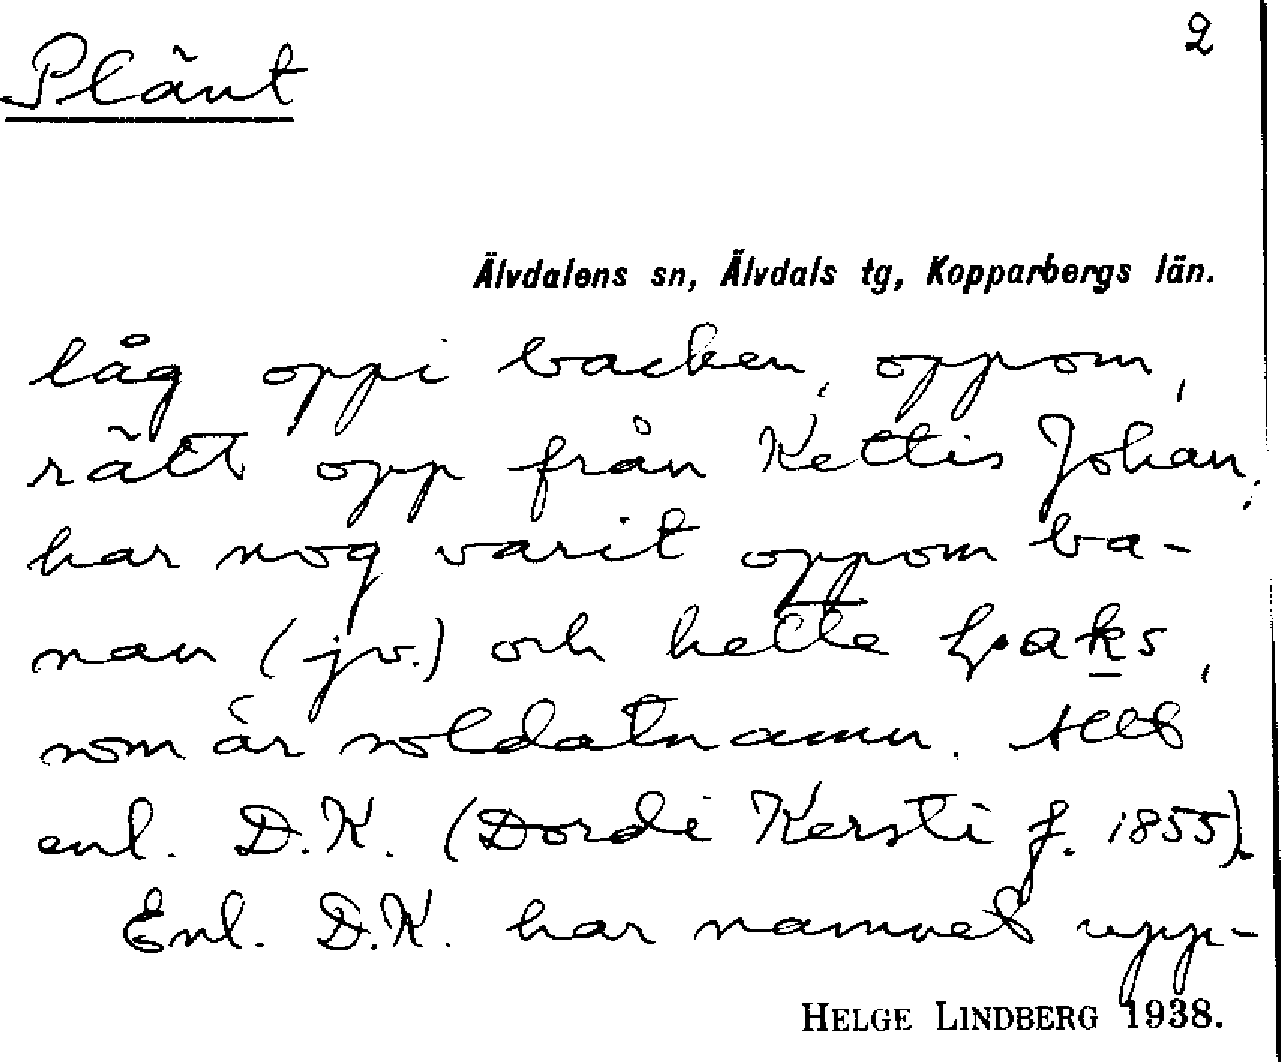 2
Plänt
Älvdalens sn, Älvdals tg, Kopparbergs län.
låg oppi backen, oppom,
rätt opp från Kettis Johan,
har nog varit oppom ba-
nan (jv.) och hette Spaks,
som är soldatnamn. Allt
enl. D.K. (Dordi Kersti f. 1855).
Enl. D.K. har namnet upp-
HELGE LINDBERG 1938.